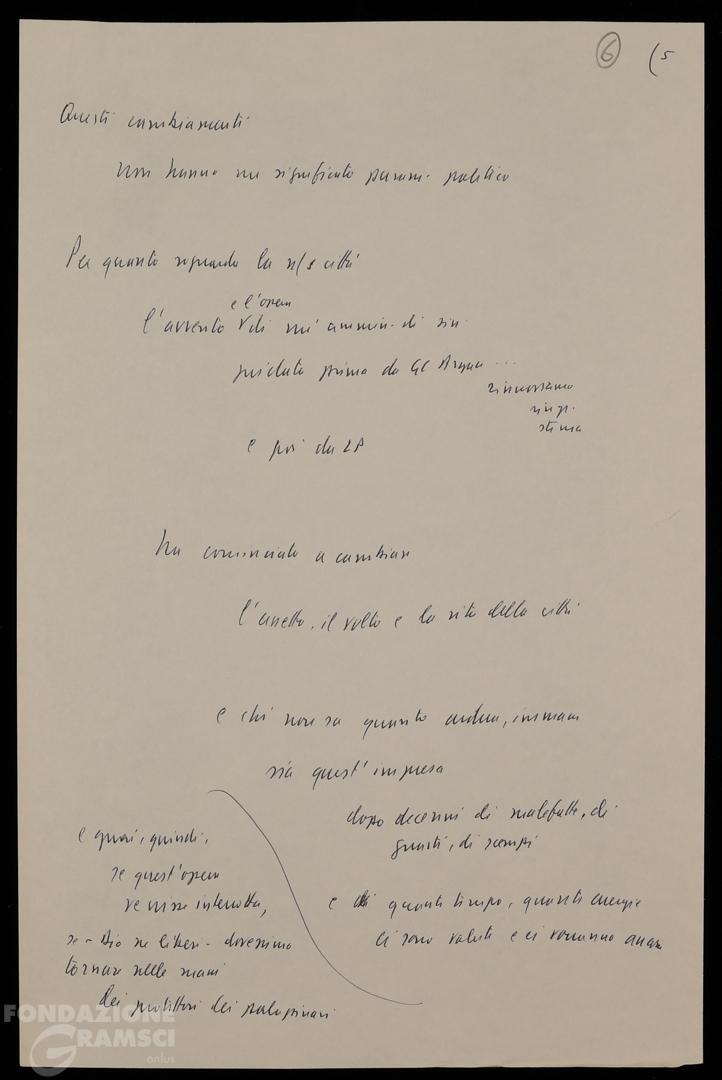 6 (5
Questi cambiamenti
non hanno un significato puram. politico
Per quanto riguarda la n/s città
e l'opera
l'avvento di un'ammin. di sin.
guidata prima da GC Argan ...
rinnoviamo
ringr.
stima
e poi da LP
ha cominciato a cambiare
l'assetto, il volto e la vita della città
e chi non sa quanto ardua, immane
sia quest'impresa
dopo decenni di malefatte, di
guasti, di scempi
e di quanto tempo, quante energie
ci sono volute e ci vorranno ancora
e guai, quindi,
se quest'opera
venisse interrotta,
se - Dio ne liberi - dovessimo
tornare nelle mani
dei protettori dei palazzinari
FONDAZIONE
GRAMSCI
onlus